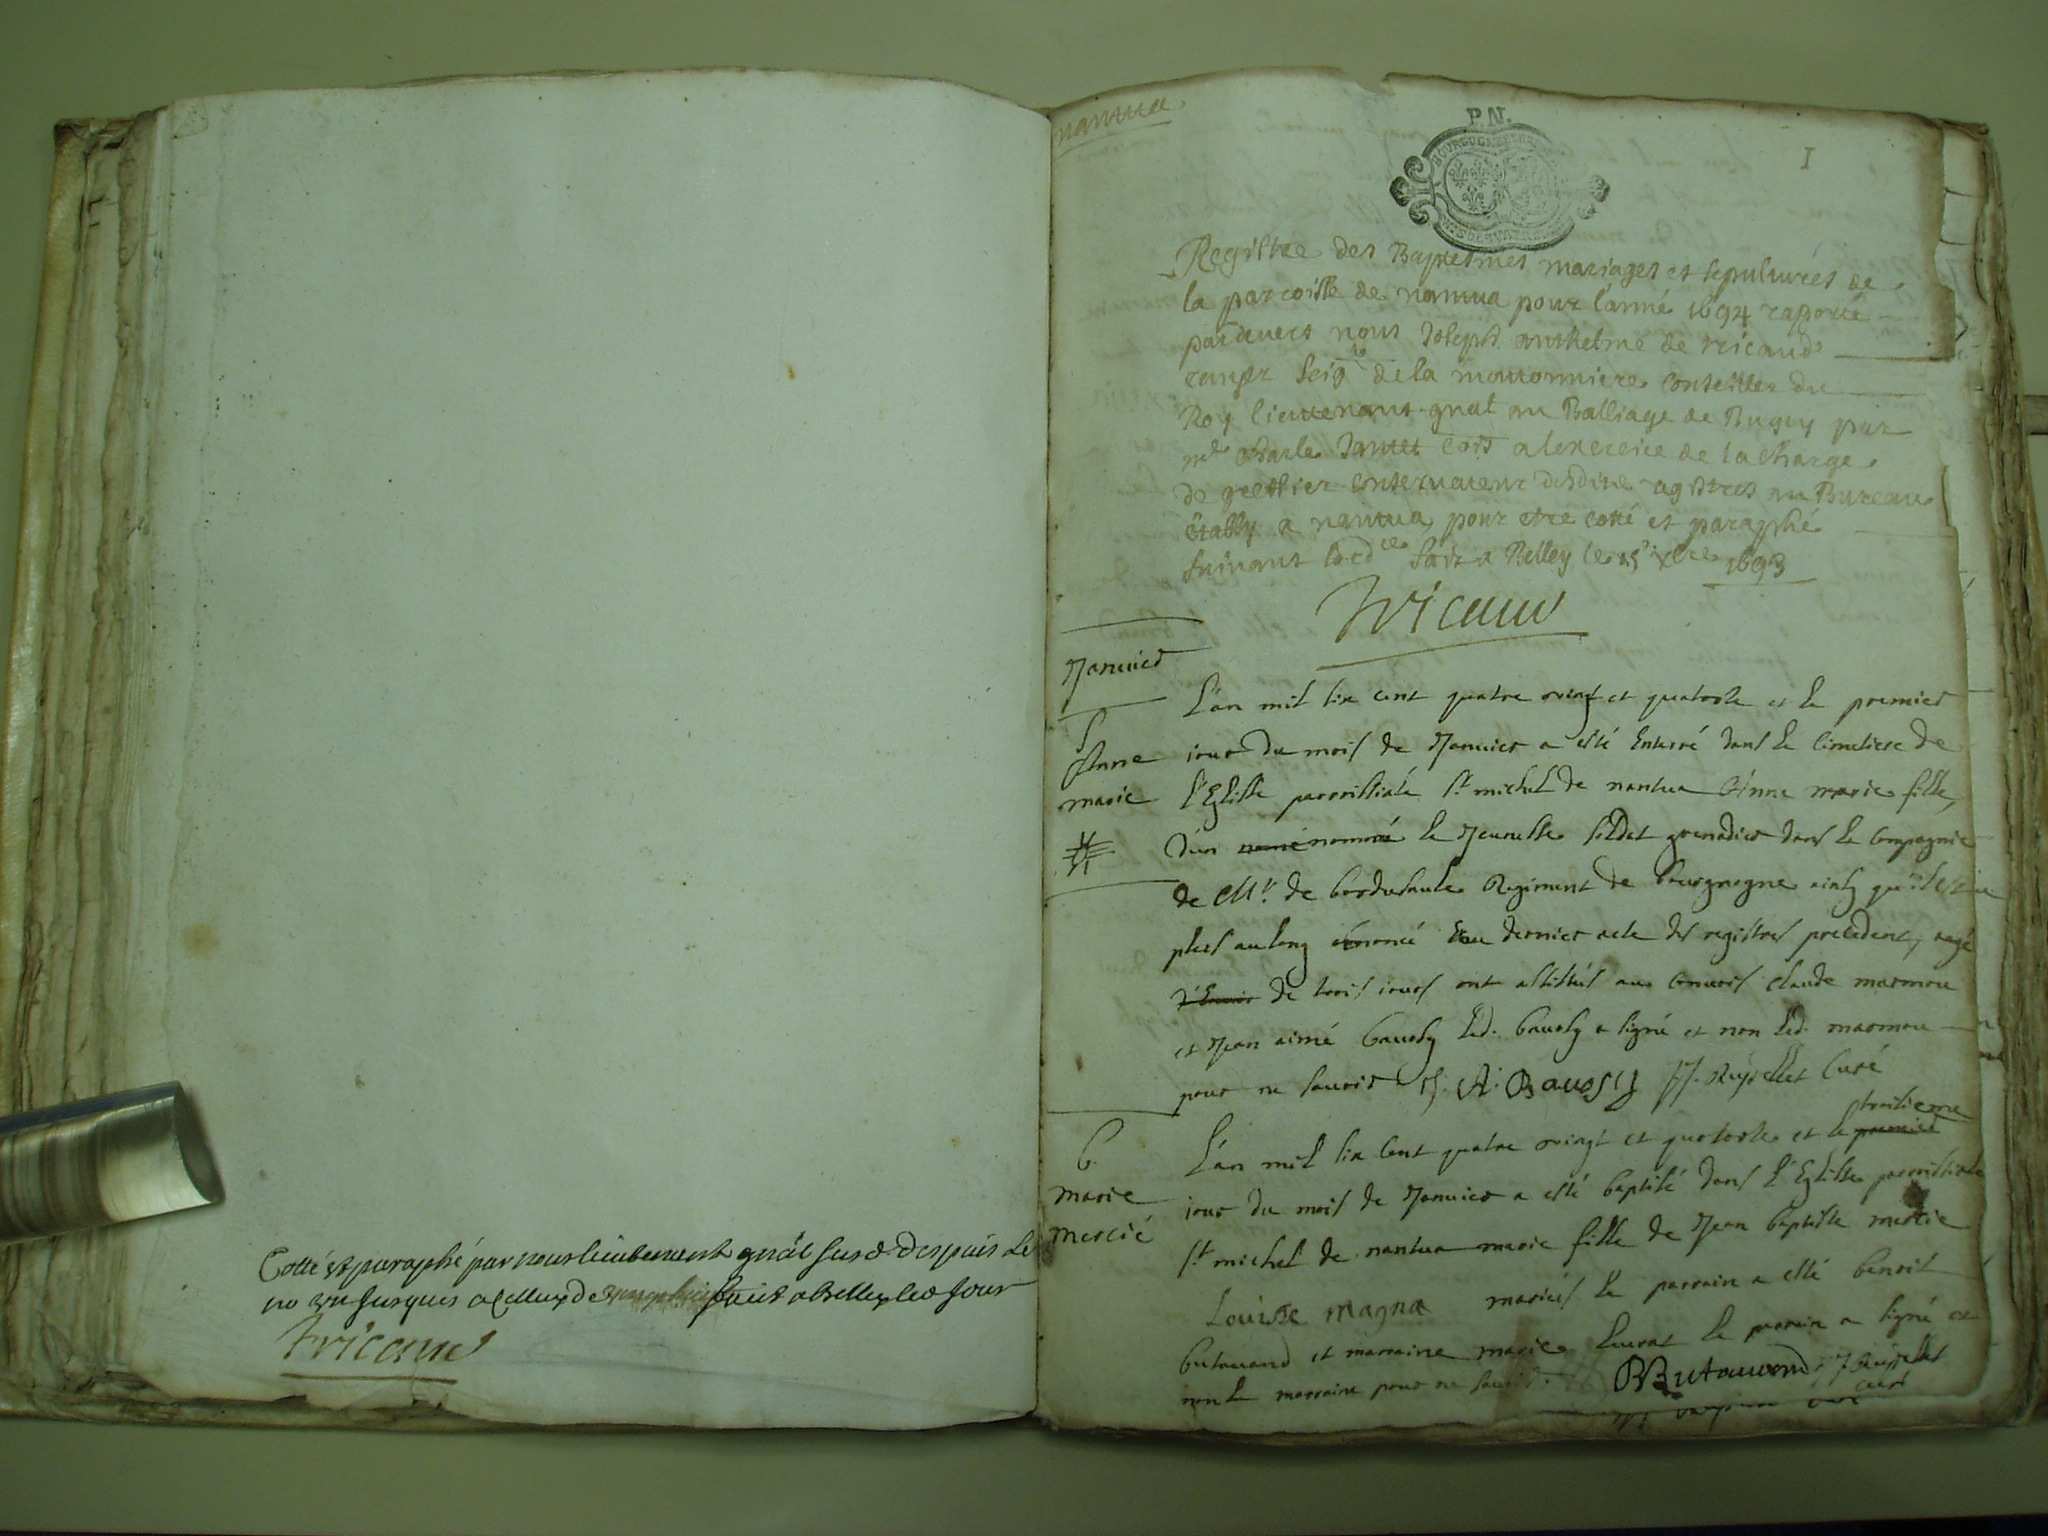 Cotté et paraphé par nous lieutenant gnâl susd. despuis le
no un jusques a celluy de fait a Belley led jour
Tricaud
nantua
P.N.
BOURGOGNE
1
Registre des Baptesmes mariages et sepultures de
la parroisse de nantua pour l'anné 1694 raporté
pardevers nous Joseph Anthelme de Tricaud
Seigr de la conseiller du
Roy lieutenant gnal au Balliage de Bugey par
mr Charle Comis a lexercice de la charge
de greffier conservateur desdits registres au Bureau
étably a nantua pour etre cotté et paraphé
suivant Fait a Belley le 15 xbre 1693
Tricaud
Janvier
L'an mil six cent quatre vingt et quatorse et le premier
S
Anne
marie
jour du mois de Janvier a esté enterré dans le cimetiere de
l'Eglise parroissiale St michel de nantua Anne marie fille
d'un nommé la Jeunesse soldat grenadier dans la Compagnie
de Mr. de Regiment de bourgogne ainsy qu'il est
plus au long énoncé au dernier acte des registres precedent, aagé
de trois jours ont assistés au convois Claude marmou
et Jean aimé baussy led. baussy a signé et non led. marmou
pour ne savoir J. A. Baussy curé
B.
marie
mercié
L'an mil six cent quatre vingt et quatorse et le premier troisieme
jour du mois de Janvier a esté baptisé dans l'Eglise parroissiale
St michel de nantua marie fille de Jean baptiste mercie
Louise magna mariés le parrain a esté benoit
butavand et marraine marie le parrain a signé et
non la marraine pour ne savoir. B Butavand
curé